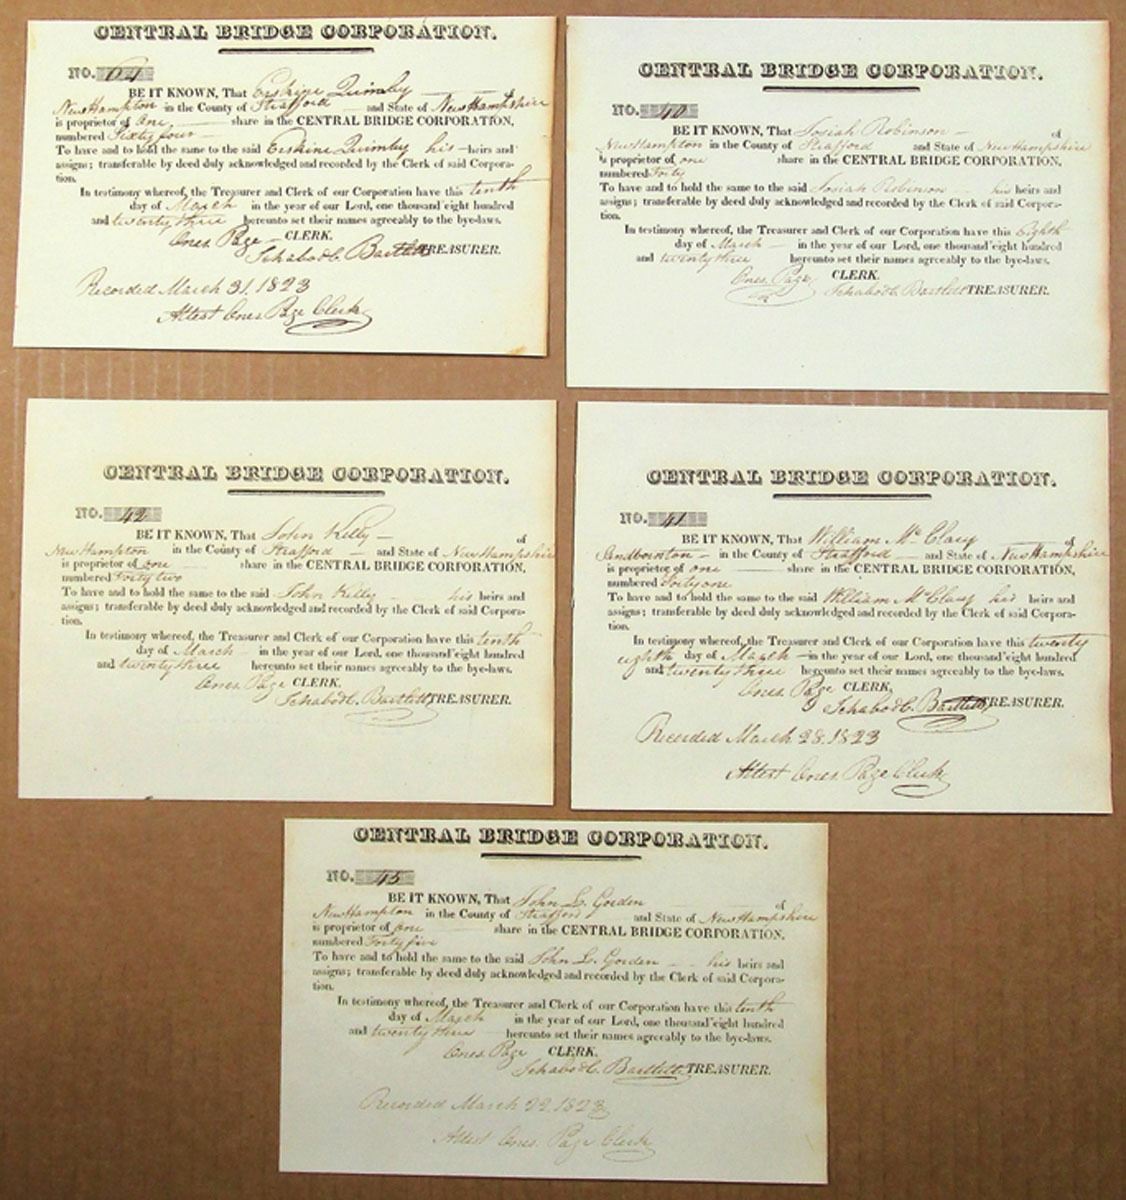 CENTRAL BRIDGE CORPORATION.
NO. 64
BE IT KNOWN, That Erskine Quimby — of
New Hampton in the County of Strafford — and State of New Hampshire
is proprietor of One — share in the CENTRAL BRIDGE CORPORATION,
numbered Sixty four —
To have and to hold the same to the said Erskine Quimby his – heirs and
assigns; transferable by deed duly acknowledged and recorded by the Clerk of said Corpora-
tion.
In testimony whereof, the Treasurer and Clerk of our Corporation have this tenth
day of March in the year of our Lord, one thousand eight hundred
and twenty three hereunto set their names agreeably to the bye-laws.
Ones. Page — CLERK.
Ichabod C. Bartlett TREASURER.
Recorded March 31. 1823
Attest Ones. Page Clerk
CENTRAL BRIDGE CORPORATION.
NO. 40
BE IT KNOWN, That Josiah Robinson — of
New Hampton in the County of Strafford and State of New Hampshire
is proprietor of one share in the CENTRAL BRIDGE CORPORATION,
numbered Forty
To have and to hold the same to the said Josiah Robinson — his heirs and
assigns; transferable by deed duly acknowledged and recorded by the Clerk of said Corpora-
tion.
In testimony whereof, the Treasurer and Clerk of our Corporation have this Eighth
day of March — in the year of our Lord, one thousand eight hundred
and twenty three hereunto set their names agreeably to the bye-laws.
Ones. Page CLERK.
Ichabod C. Bartlett TREASURER.
CENTRAL BRIDGE CORPORATION.
NO. 42
BE IT KNOWN, That John Kelly — of
New Hampton in the County of Strafford — and State of New Hampshire
is proprietor of one — share in the CENTRAL BRIDGE CORPORATION,
numbered Forty two
To have and to hold the same to the said John Kelly — his heirs and
assigns; transferable by deed duly acknowledged and recorded by the Clerk of said Corpora-
tion.
In testimony whereof, the Treasurer and Clerk of our Corporation have this tenth
day of March — in the year of our Lord, one thousand eight hundred
and twenty three hereunto set their names agreeably to the bye-laws.
Ones. Page CLERK.
Ichabod C. Bartlett TREASURER.
CENTRAL BRIDGE CORPORATION.
NO. 41
BE IT KNOWN, That William Mc Clary of
Sandbornton – in the County of Strafford — and State of New Hampshire
is proprietor of one — share in the CENTRAL BRIDGE CORPORATION,
numbered Forty one
To have and to hold the same to the said William Mc Clary his heirs and
assigns; transferable by deed duly acknowledged and recorded by the Clerk of said Corpora-
tion.
In testimony whereof, the Treasurer and Clerk of our Corporation have this twenty
eighth day of March — in the year of our Lord, one thousand eight hundred
and twenty three hereunto set their names agreeably to the bye-laws.
Ones. Page CLERK,
Ichabod C. Bartlett TREASURER.
Recorded March 28. 1823
Attest Ones. Page Clerk
CENTRAL BRIDGE CORPORATION.
NO. 45
BE IT KNOWN, That John L. Gorden of
New Hampton in the County of Strafford — and State of New Hampshire
is proprietor of one — share in the CENTRAL BRIDGE CORPORATION,
numbered Forty five
To have and to hold the same to the said John L. Gorden — his heirs and
assigns; transferable by deed duly acknowledged and recorded by the Clerk of said Corpora-
tion.
In testimony whereof, the Treasurer and Clerk of our Corporation have this tenth
day of March — in the year of our Lord, one thousand eight hundred
and twenty three — hereunto set their names agreeably to the bye-laws.
Ones. Page CLERK.
Ichabod C. Bartlett TREASURER.
Recorded March 22. 1823
Attest Ones. Page Clerk